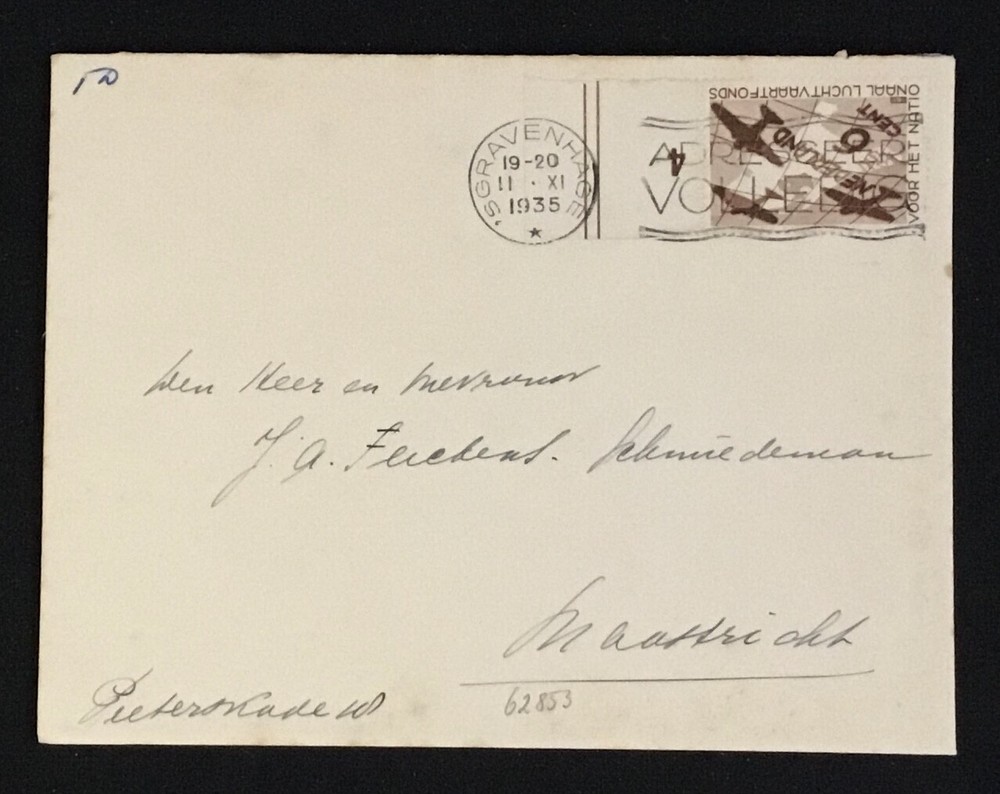 'SGRAVENHAGE
19-20
11 · XI
1935
ADRESSEER
VOLLEDIG
VOOR HET NATIONAAL LUCHTVAARTFONDS
NEDERLAND
6
CENT
4
Den Heer en Mevrouw
J. A. Schmiedeman
Maastricht
Pieterskade
62853